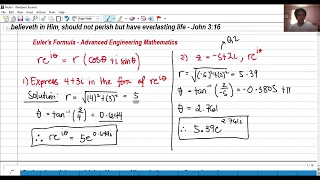 ... believeth in Him, should not perish but have everlasting life - John 3:16
Euler's Formula - Advanced Engineering Mathematics
re^iθ = r (cosθ + i sinθ)
1) Express 4+3i in the form of re^iθ
Solution: r = √(4)²+(3)² = 5
θ = tan⁻¹(3/4) = 0.6444
∴ re^iθ = 5e^0.644i
Q2
2) z = -5+2i, re^iθ
r = √(-5)²+(2)² = 5.39
θ = tan⁻¹(2/-5) = -0.3805 + π
θ = 2.761
∴ 5.39e^2.761i